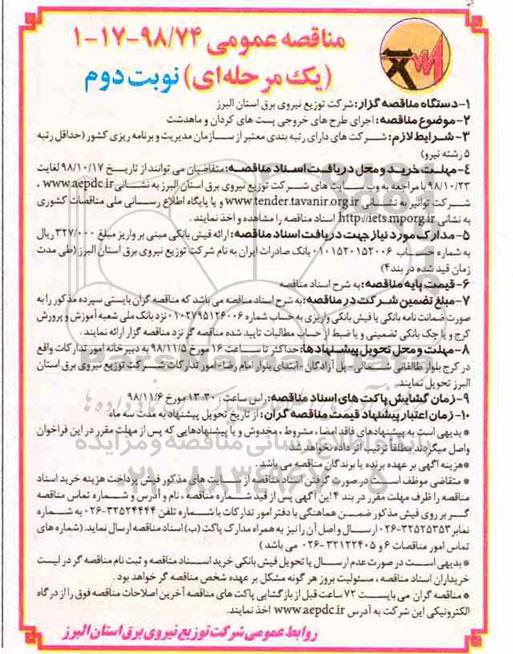 مناقصه عمومی ۹۸/۷۴-۱۷-۱
(یک مرحله‌ای) نوبت دوم
۱-دستگاه مناقصه گزار: شرکت توزیع نیروی برق استان البرز
۲-موضوع مناقصه: اجرای طرح های خروجی پست های کردان و ماهدشت
۳-شرایط لازم: شرکت های دارای رتبه بندی معتبر از سازمان مدیریت و برنامه ریزی کشور (حداقل رتبه
۵ رشته نیرو)
۴-مهلت خرید و محل دریافت اسناد مناقصه: متقاضیان می توانند از تاریخ ۹۸/۱۰/۱۷ لغایت
۹۸/۱۰/۲۳ با مراجعه به وب سایت های شرکت توزیع نیروی برق استان البرز به نشانی www.aepdc.ir ،
شرکت توانیر به نشانی www.tender.tavanir.org.ir و یا پایگاه اطلاع رسانی ملی مناقصات کشوری
به نشانی http://iets.mporg.ir اسناد مناقصه را مشاهده و اخذ نمایند .
۵-مدارک مورد نیاز جهت دریافت اسناد مناقصه: ارائه فیش بانکی مبنی بر واریز مبلغ ۳۲۷/۰۰۰ ریال
به شماره حساب ۰۱۰۱۵۲۰۱۵۲۰۰۶ بانک صادرات ایران به نام شرکت توزیع نیروی برق استان البرز (طی مدت
زمان قید شده در بند۴)
۶-قیمت پایه مناقصه: به شرح اسناد مناقصه
۷-مبلغ تضمین شرکت در مناقصه: به شرح اسناد مناقصه می باشد که مناقصه گران بایستی سپرده مذکور را به
صورت ضمانت نامه بانکی یا فیش بانکی واریزی به حساب شماره ۰۱۰۲۷۹۵۱۲۶۰۰۶ نزد بانک ملی شعبه آموزش و پرورش
کرج و یا چک بانکی تضمینی و یا ضبط از حساب مطالبات تایید شده مناقصه گر نزد مناقصه گزار ارائه نمایند .
۸-مهلت و محل تحویل پیشنهادها: حداکثر تا ساعت ۱۶ مورخ ۹۸/۱۱/۵ به دبیرخانه امور تدارکات واقع
در کرج بلوار طالقانی شمالی- پل آزادگان - ابتدای بلوار امام رضا- امور تدارکات شرکت توزیع نیروی برق استان
البرز تحویل نمایند.
۹-زمان گشایش پاکت های اسناد مناقصه: راس ساعت : ۱۳:۳۰ مورخ ۹۸/۱۱/۶
۱۰-زمان اعتبار پیشنهاد قیمت مناقصه گران: از تاریخ تحویل پیشنهاد به مدت سه ماه
* بدیهی است به پیشنهادهای فاقد امضا، مشروط ، مخدوش و یا پیشنهادهایی که پس از مهلت مقرر در این فراخوان
واصل میگردند مطلقاً ترتیب اثر داده نخواهد شد.
*هزینه آگهی بر عهده برنده یا برندگان مناقصه می باشد .
* متقاضی موظف است در صورت گرفتن اسناد مناقصه از سایت های مذکور فیش پرداخت هزینه خرید اسناد
مناقصه را ظرف مهلت مقرر در بند ۴ این آگهی پس از قید شماره مناقصه ، نام و آدرس و شماره تماس مناقصه
گر بر روی فیش مذکور ضمن هماهنگی با دفتر امور تدارکات با شماره تلفن ۳۲۵۲۴۴۴۴-۰۲۶ به شماره
نمابر ۳۲۵۲۵۳۵۳-۰۲۶ ارسال و اصل آن را نیز به همراه مدارک پاکت (ب) اسناد مناقصه ارسال نماید. (شماره های
تماس امور مناقصات ۶ و ۳۲۱۲۲۴۰۵-۰۲۶ می باشد )
* بدیهی است در صورت عدم ارسال یا تحویل فیش بانکی خرید اسناد مناقصه و ثبت نام مناقصه گر در لیست
خریداران اسناد مناقصه ، مسئولیت بروز هر گونه مشکل بر عهده شخص مناقصه گر خواهد بود .
* مناقصه گران می بایست ۷۲ ساعت قبل از بازگشایی پاکت های مناقصه آخرین اصلاحات مناقصه فوق را از درگاه
الکترونیکی این شرکت به آدرس www.aepdc.ir اخذ نمایند.
روابط عمومی شرکت توزیع نیروی برق استان البرز